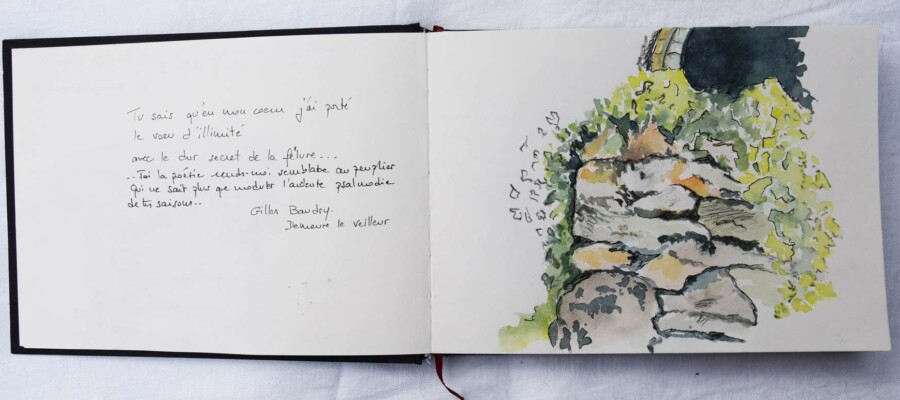 Tu sais qu'en mon coeur j'ai porté
le voeu d'illimité
avec le dur secret de la fêlure...
..Toi la poésie rends-moi semblable au peuplier
Qui ne sait plus que moduler l'ardente psalmodie
de tes saisons..
Gilles Baudry.
Demeure le veilleur